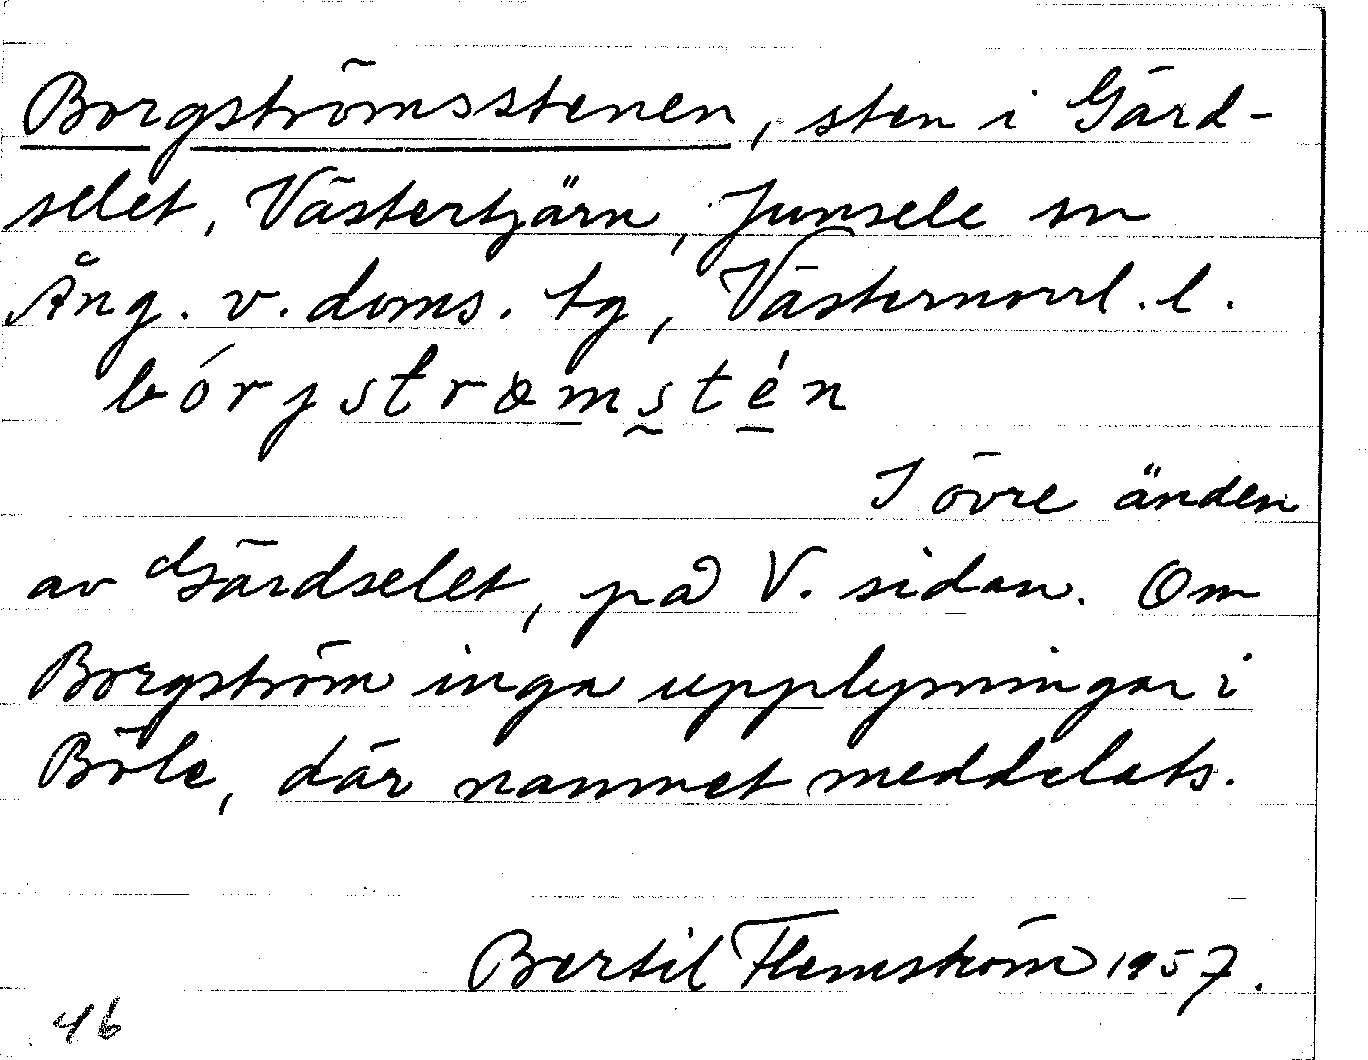 Borgströmsstenen, sten i Gärd-
selet, Västertjärn, Junsele sn
Ång. v. doms. tg, Västernorrl. l.
bórjstrœmstén
I övre änden
av Gärdselet, på V. sidan. Om
Borgström inga upplysningar i
Böle, där namnet meddelats.
Bertil Flemström 1957.
46